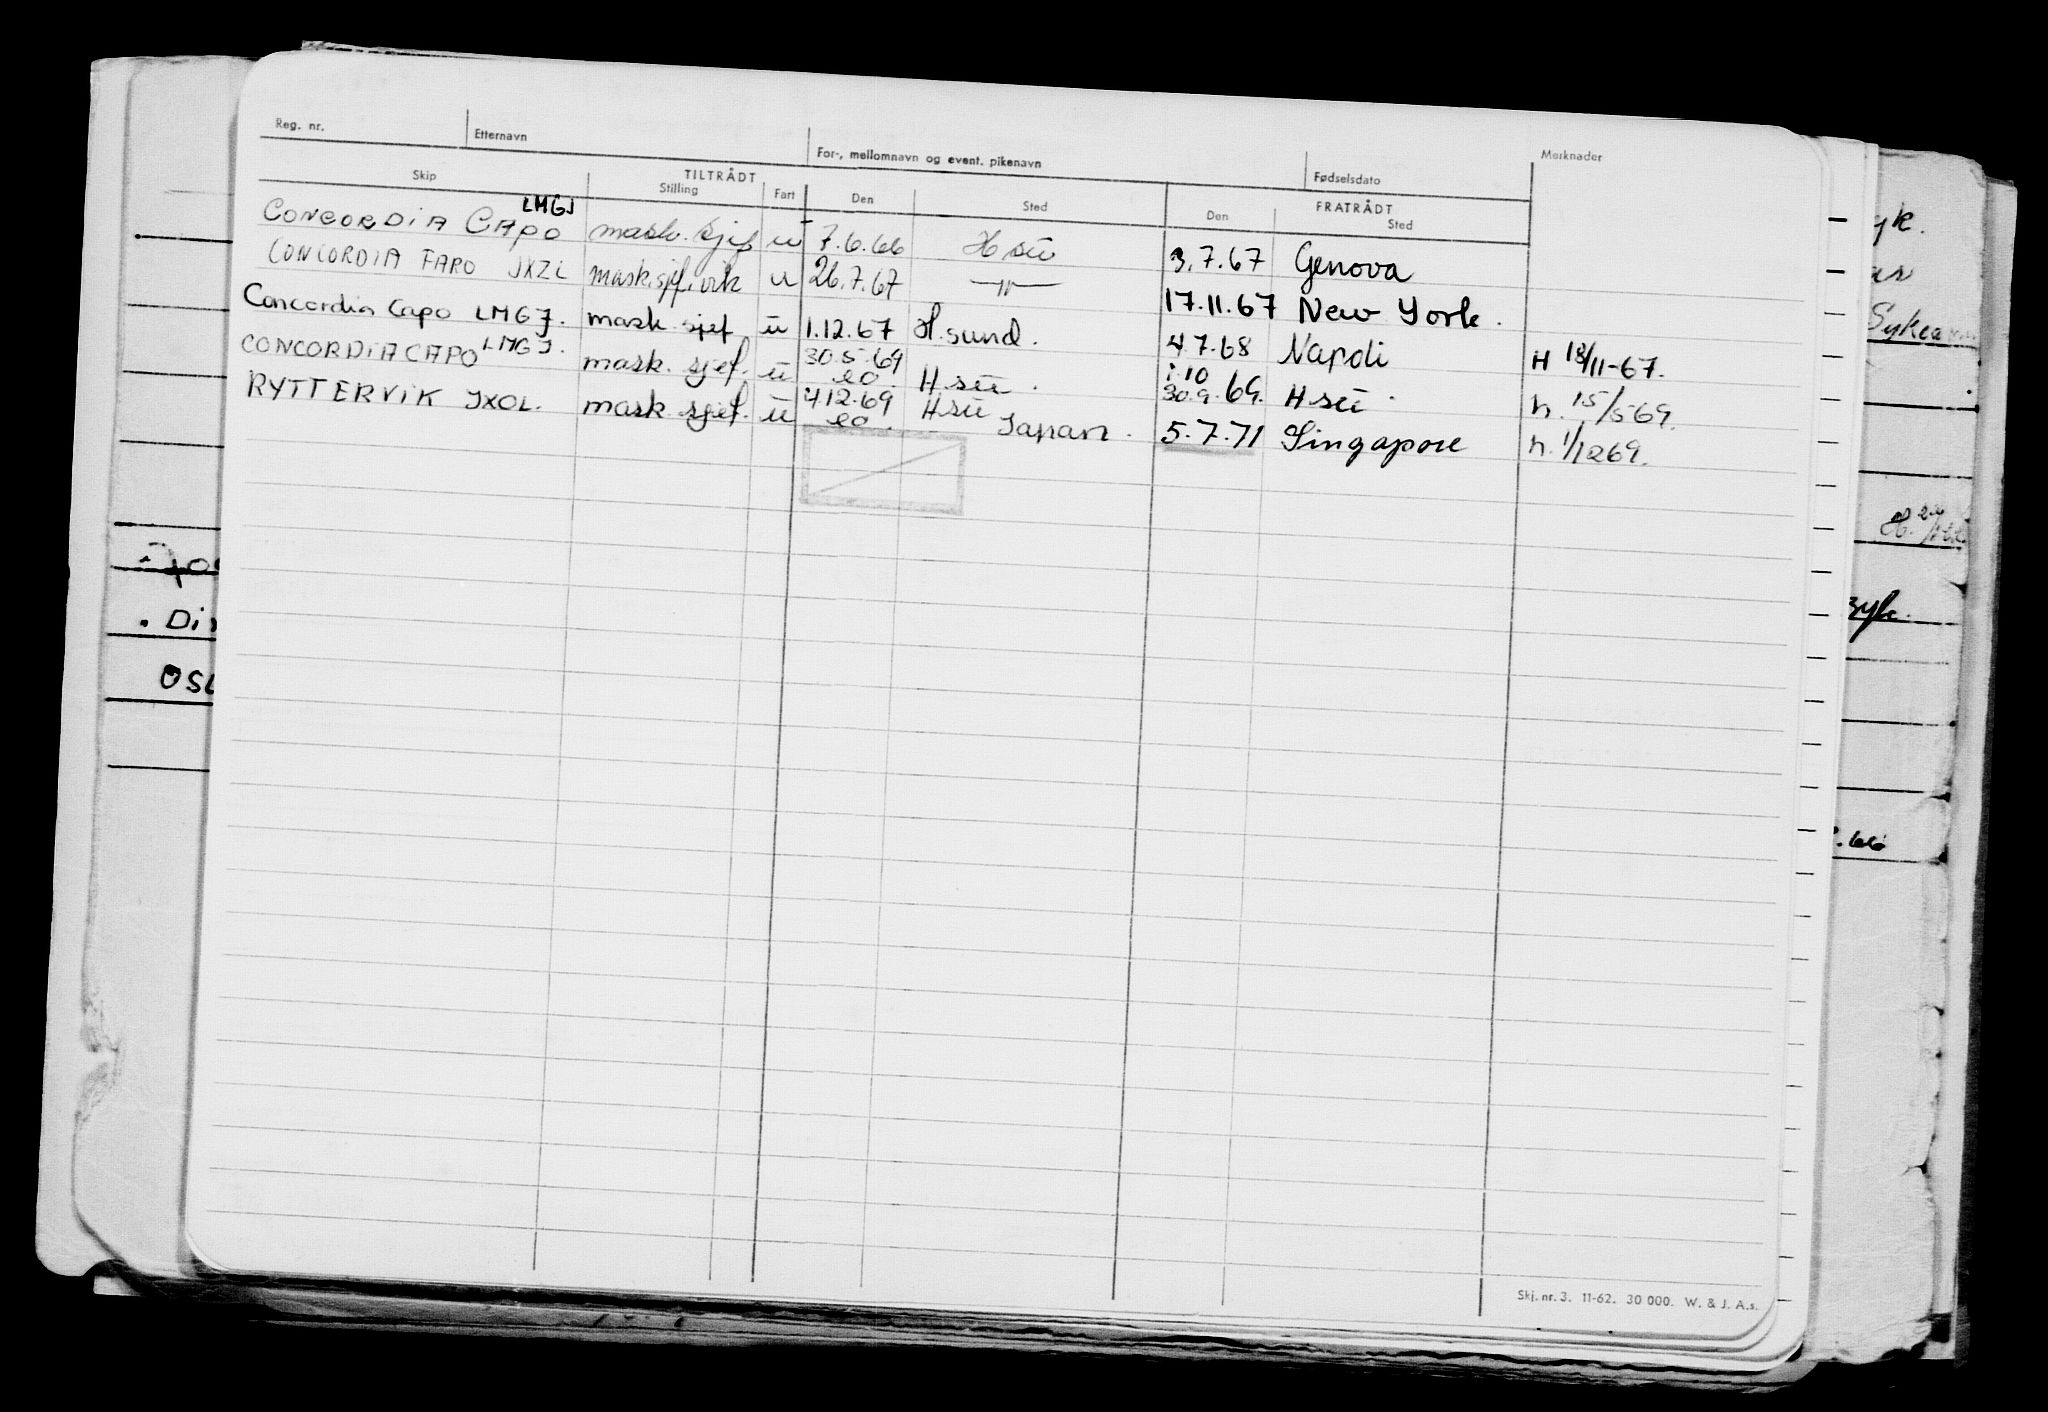 Reg. nr. Etternavn For-, mellomnavn og event. pikenavn Fødselsdato Merknader
Skip TILTRÅDT FRATRÅDT
Stilling Fart Den Sted Den Sted
CONCORDIA CAPO LMGJ mask. sjef u 7.6.66 H 3.7.67 Genova
CONCORDIA FARO JXZL mask.sjef.vik u 26.7.67 —"— 17.11.67 New York.
Concordia Capo LMGJ. mask. sjef ü 1.12.67 H.sund. 4.7.68 Napoli H 18/11-67.
CONCORDIA CAPO LMGJ. mask. sjef. ü 30.5.69 ca. H 1.10 30.9.69. H h. 15/5 69.
RYTTERVIK JXOL. mask sjef. ü 4.12.69 ca. H Japan. 5.7.71 Singapore h. 1/12 69.
Skj. nr. 3. 11-62. 30 000. W. & J. A.s.
OSL